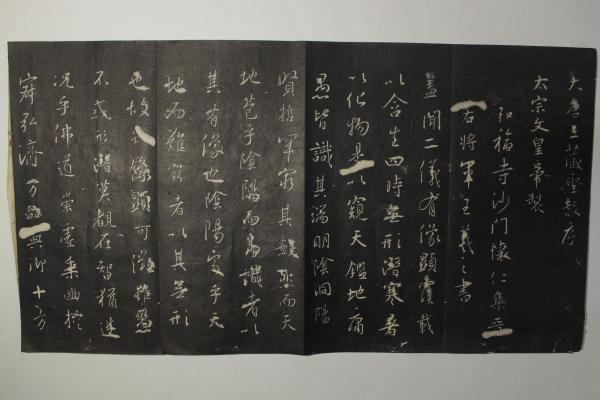 大唐三藏聖教序
太宗文皇帝製
弘福寺沙門懷仁集晉
右將軍王羲之書
蓋聞二儀有像顯覆載
以含生四時無形潛寒暑
以化物是以窺天鑑地庸
愚皆識其端明陰洞陽
賢哲罕窮其數然而天
地苞乎陰陽而易識者以
其有像也陰陽處乎天
地而難窮者以其無形
也故知像顯可徵雖愚
不惑形潛莫覩在智猶迷
况乎佛道崇虛乘幽控
寂弘濟万品典御十方